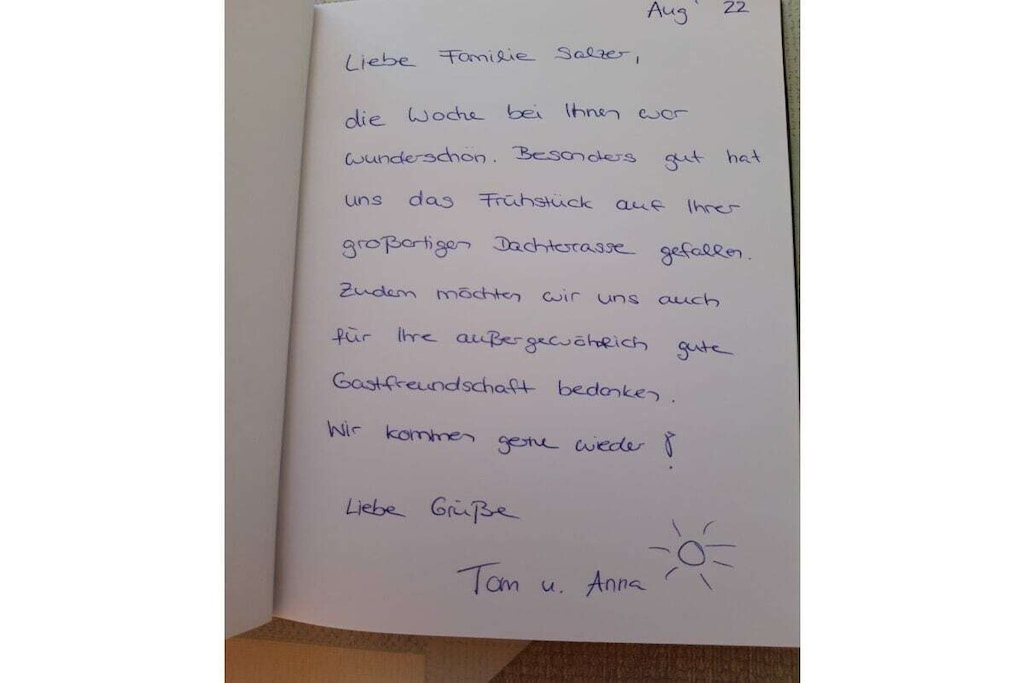 Aug' 22
Liebe Familie Salzer,
die Woche bei Ihnen war
wunderschön. Besonders gut hat
uns das Frühstück auf Ihrer
großartigen Dachterrasse gefallen.
Zudem möchten wir uns auch
für Ihre außergewöhnlich gute
Gastfreundschaft bedanken.
Wir kommen gerne wieder!
Liebe Grüße
Tom u. Anna